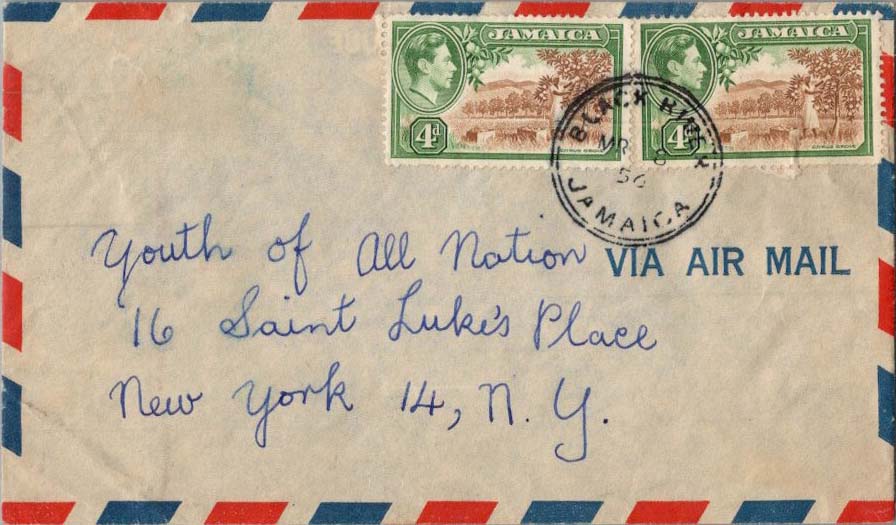 JAMAICA JAMAICA
4d 4
CITRUS GROVE CITRUS GROVE
BLACK RIVER
MR 8
56
JAMAICA
VIA AIR MAIL
Youth of All Nation
16 Saint Luke's Place
New York 14, N.Y.